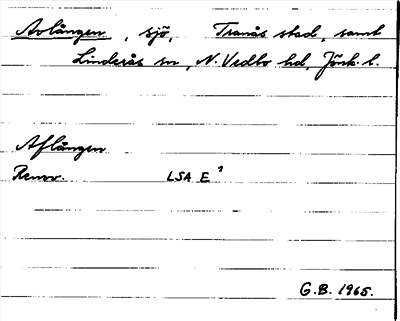 Avlången, sjö, Tranås stad, samt
Linderås sn, N. Vedbo hd, Jönk. l.
Aflången
Renov. LSA E
G.B. 1965.